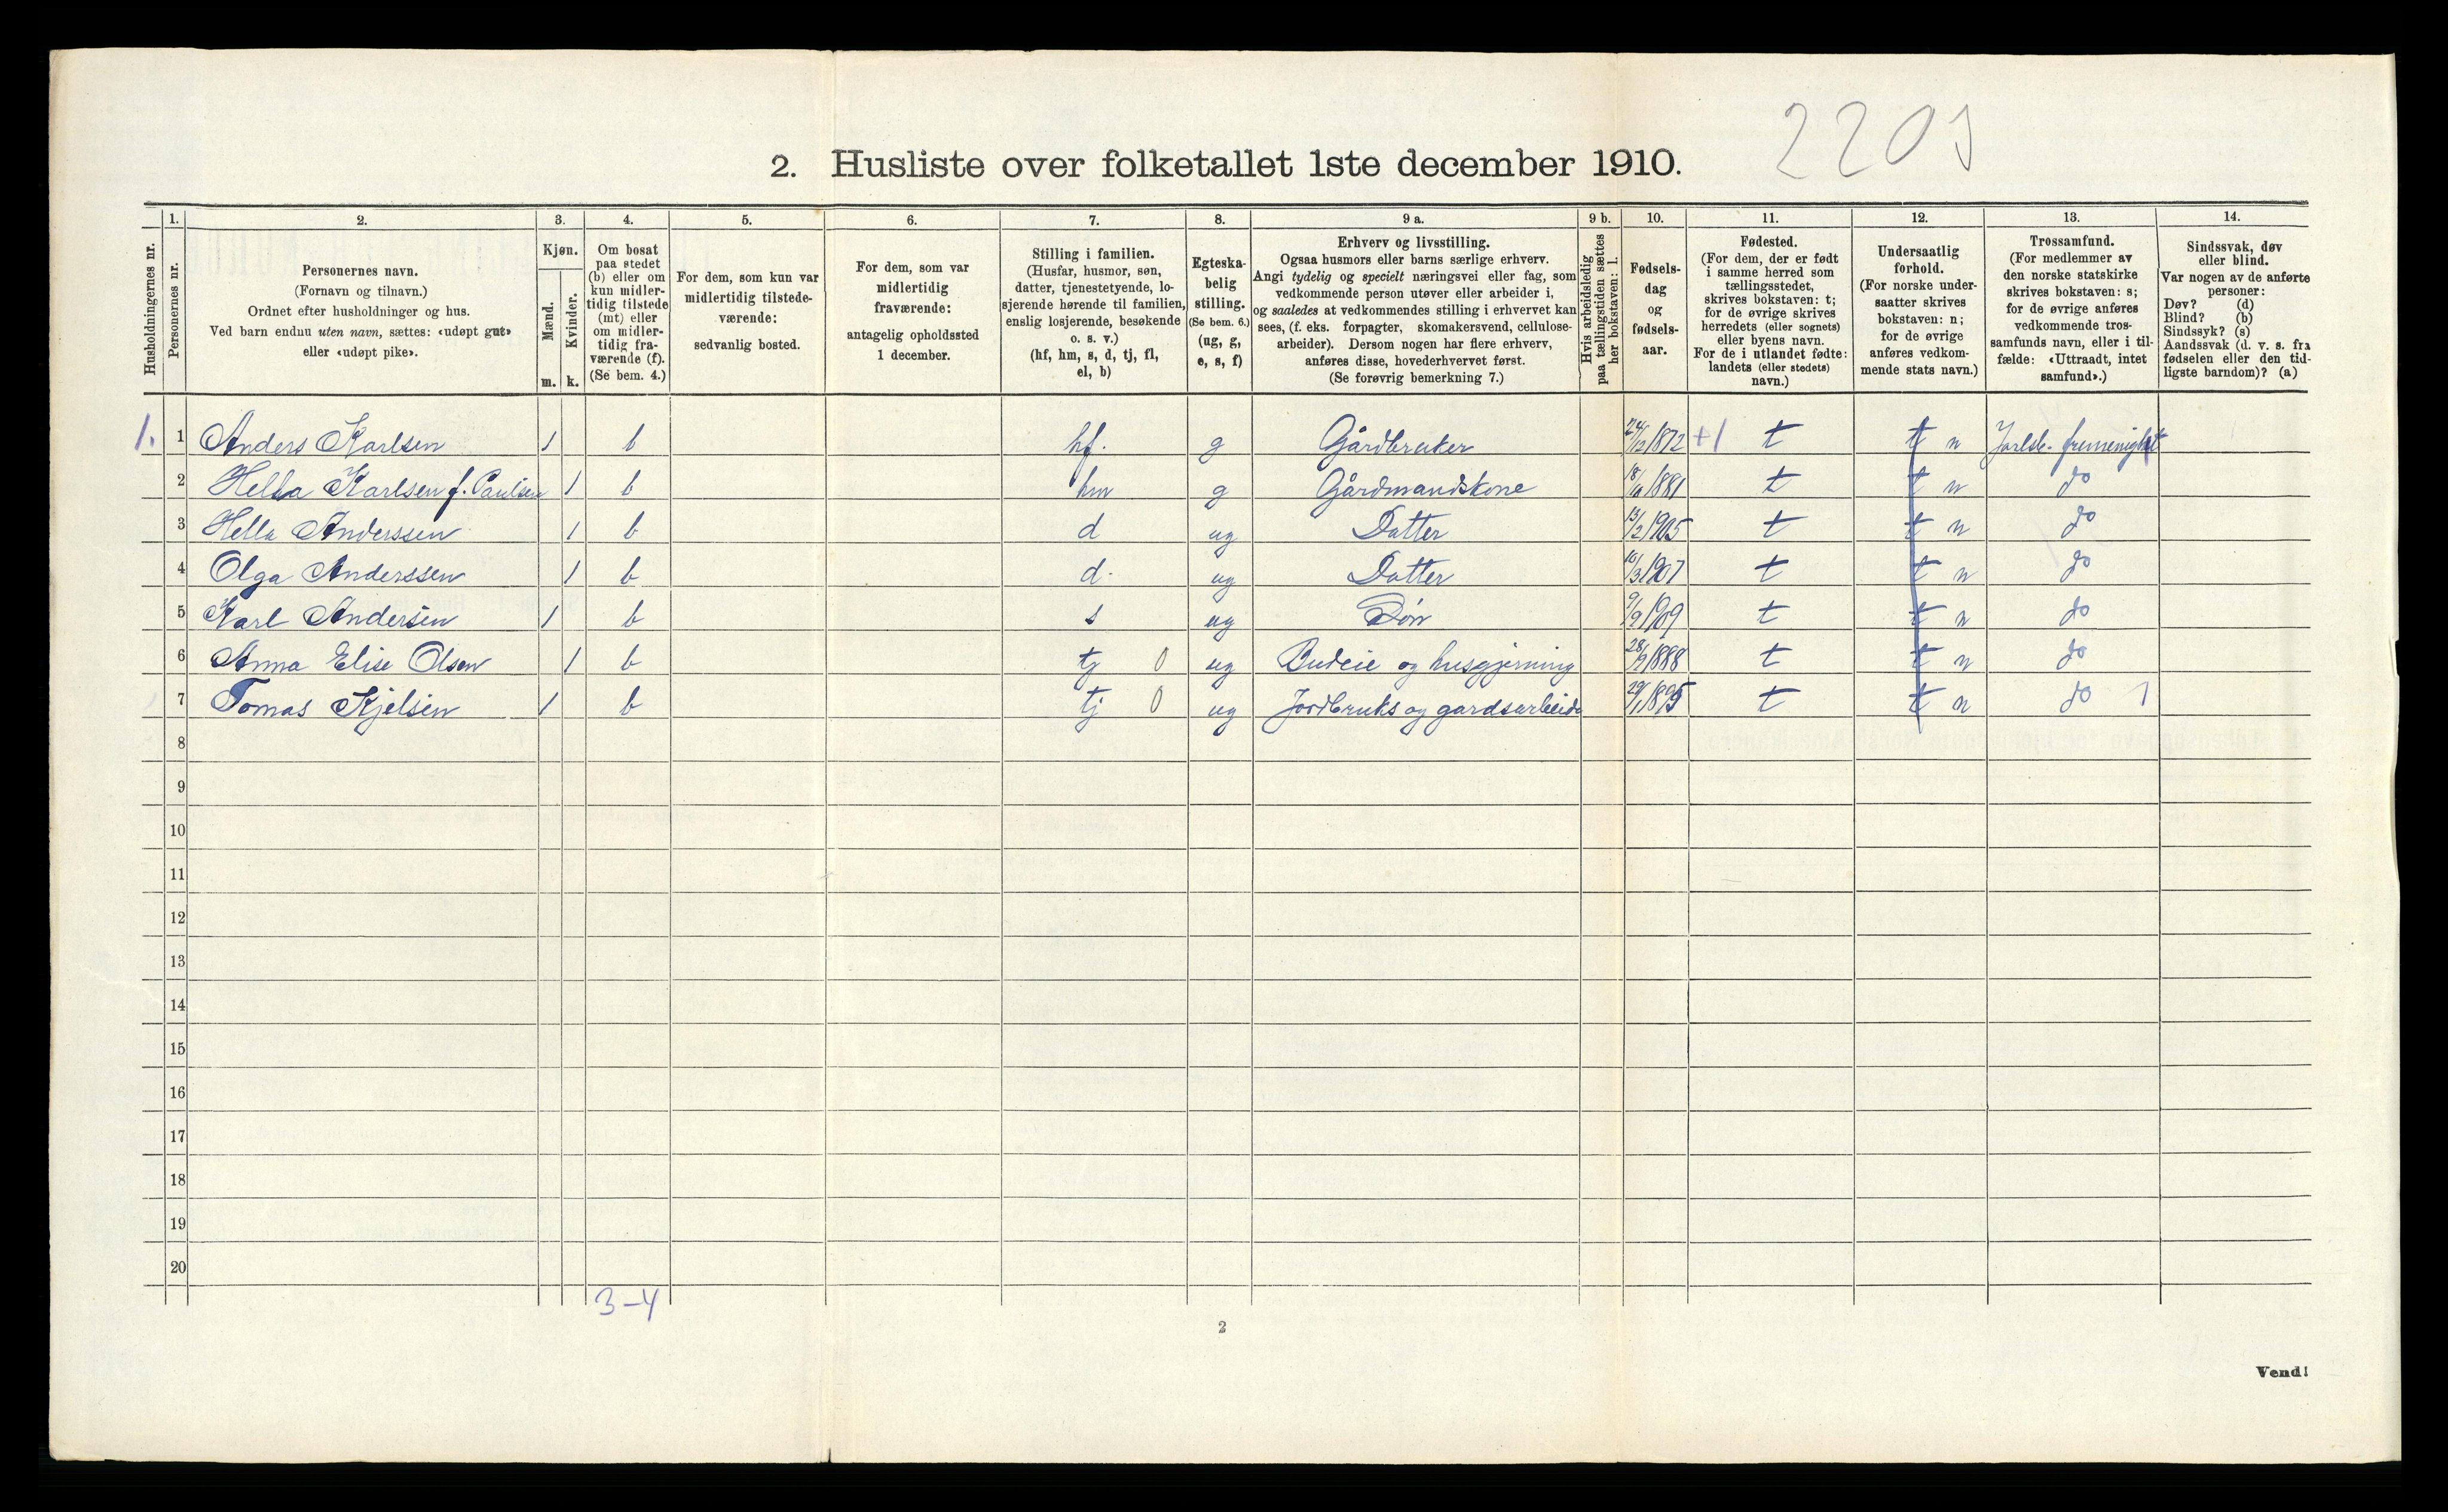 2203
2. Husliste over folketallet 1ste december 1910.
Husholdningernes nr.
1. Personernes nr.
2. Personernes navn. (Fornavn og tilnavn.) Ordnet efter husholdninger og hus. Ved barn endnu uten navn, sættes: «udøpt gut» eller «udøpt pike».
3. Kjøn. Mænd. m. Kvinder. k.
4. Om bosat paa stedet (b) eller om kun midlertidig tilstede (mt) eller om midlertidig fraværende (f). (Se bem. 4.)
5. For dem, som kun var midlertidig tilstedeværende: sedvanlig bosted.
6. For dem, som var midlertidig fraværende: antagelig opholdssted 1 december.
7. Stilling i familien. (Husfar, husmor, søn, datter, tjenestetyende, losjerende hørende til familien, enslig losjerende, besøkende o. s. v.) (hf, hm, s, d, tj, fl, el, b)
8. Egteskabelig stilling. (Se bem. 6.) (ug, g, e, s, f)
9 a. Erhverv og livsstilling. Ogsaa husmors eller barns særlige erhverv. Angi tydelig og specielt næringsvei eller fag, som vedkommende person utøver eller arbeider i, og saaledes at vedkommendes stilling i erhvervet kan sees, (f. eks. forpagter, skomakersvend, cellulosearbeider). Dersom nogen har flere erhverv, anføres disse, hovederhvervet først. (Se forøvrig bemerkning 7.)
9 b. Hvis arbeidsledig paa tællingstiden sættes her bokstaven: l.
10. Fødselsdag og fødselsaar.
11. Fødested. (For dem, der er født i samme herred som tællingsstedet, skrives bokstaven: t; for de øvrige skrives herredets (eller sognets) eller byens navn. For de i utlandet fødte: landets (eller stedets) navn.)
12. Undersaatlig forhold. (For norske undersaatter skrives bokstaven: n; for de øvrige anføres vedkommende stats navn.)
13. Trossamfund. (For medlemmer av den norske statskirke skrives bokstaven: s; for de øvrige anføres vedkommende trossamfunds navn, eller i tilfælde: «Uttraadt, intet samfund».)
14. Sindssvak, døv eller blind. Var nogen av de anførte personer: Døv? (d) Blind? (b) Sindssyk? (s) Aandssvak (d. v. s. fra fødselen eller den tidligste barndom)? (a)
1. 1 Anders Karlsen 1 b hf. g Gårdbruker 24/12 1872 +1 t t n Jarlsb. frimenighet
2 Hella Karlsen f. Paulsen 1 b hm g Gårdmandskone 18/10 1881 t t n do
3 Hella Anderssen 1 b d ug Datter 13/2 1905 t t n do
4 Olga Anderssen 1 b d. ug Datter 10/3 1907 t t n do
5 Karl Andersen 1 b s ug Søn 9/9 1909 t t n do
6 Anna Elise Olsen 1 b tj 0 ug Budeie og husgjerning 28/9 1888 t t n do
7 Tomas Kjelsen 1 b tj 0 ug Jordbruks og gardsarbeide 29/1 1895 t t n do 1
8
9
10
11
12
13
14
15
16
17
18
19
20
3-4
2
Vend!